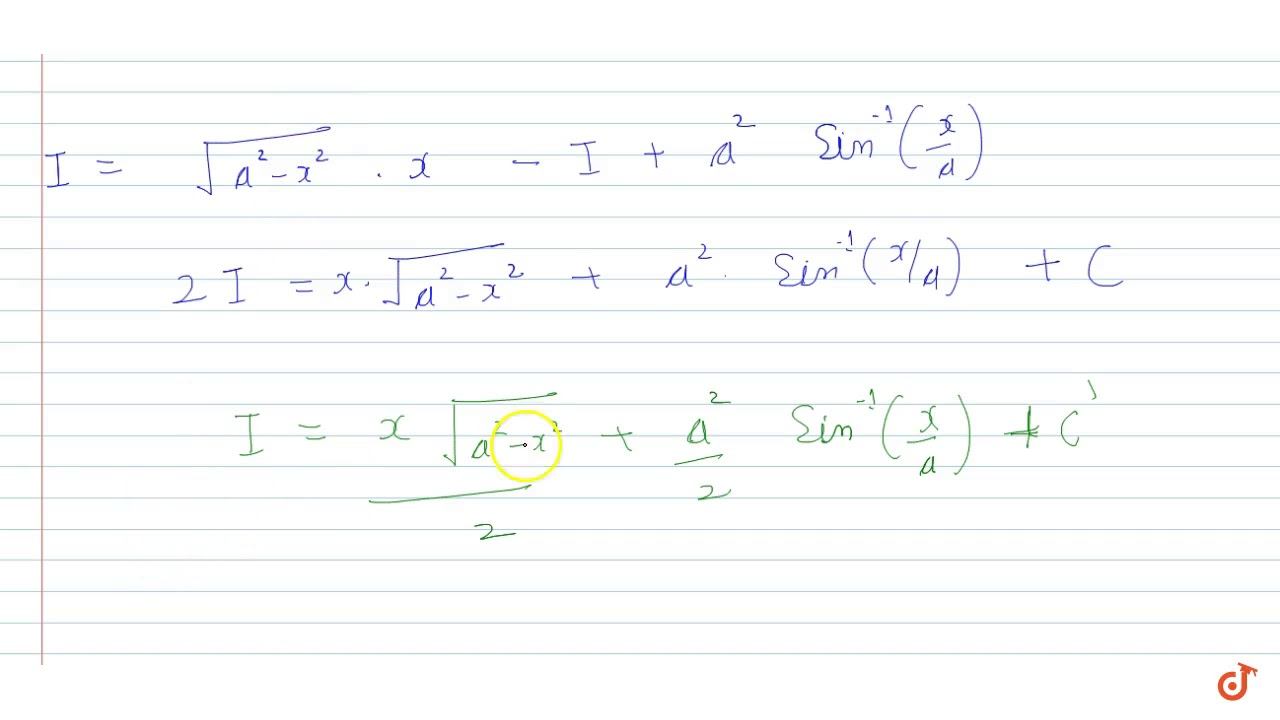 I = √(a² - x²) . x - I + a² Sin⁻¹(x/a)
2 I = x . √(a² - x²) + a² . Sin⁻¹(x/a) + C
I = x √(a² - x²) / 2 + a²/2 Sin⁻¹(x/a) + C'